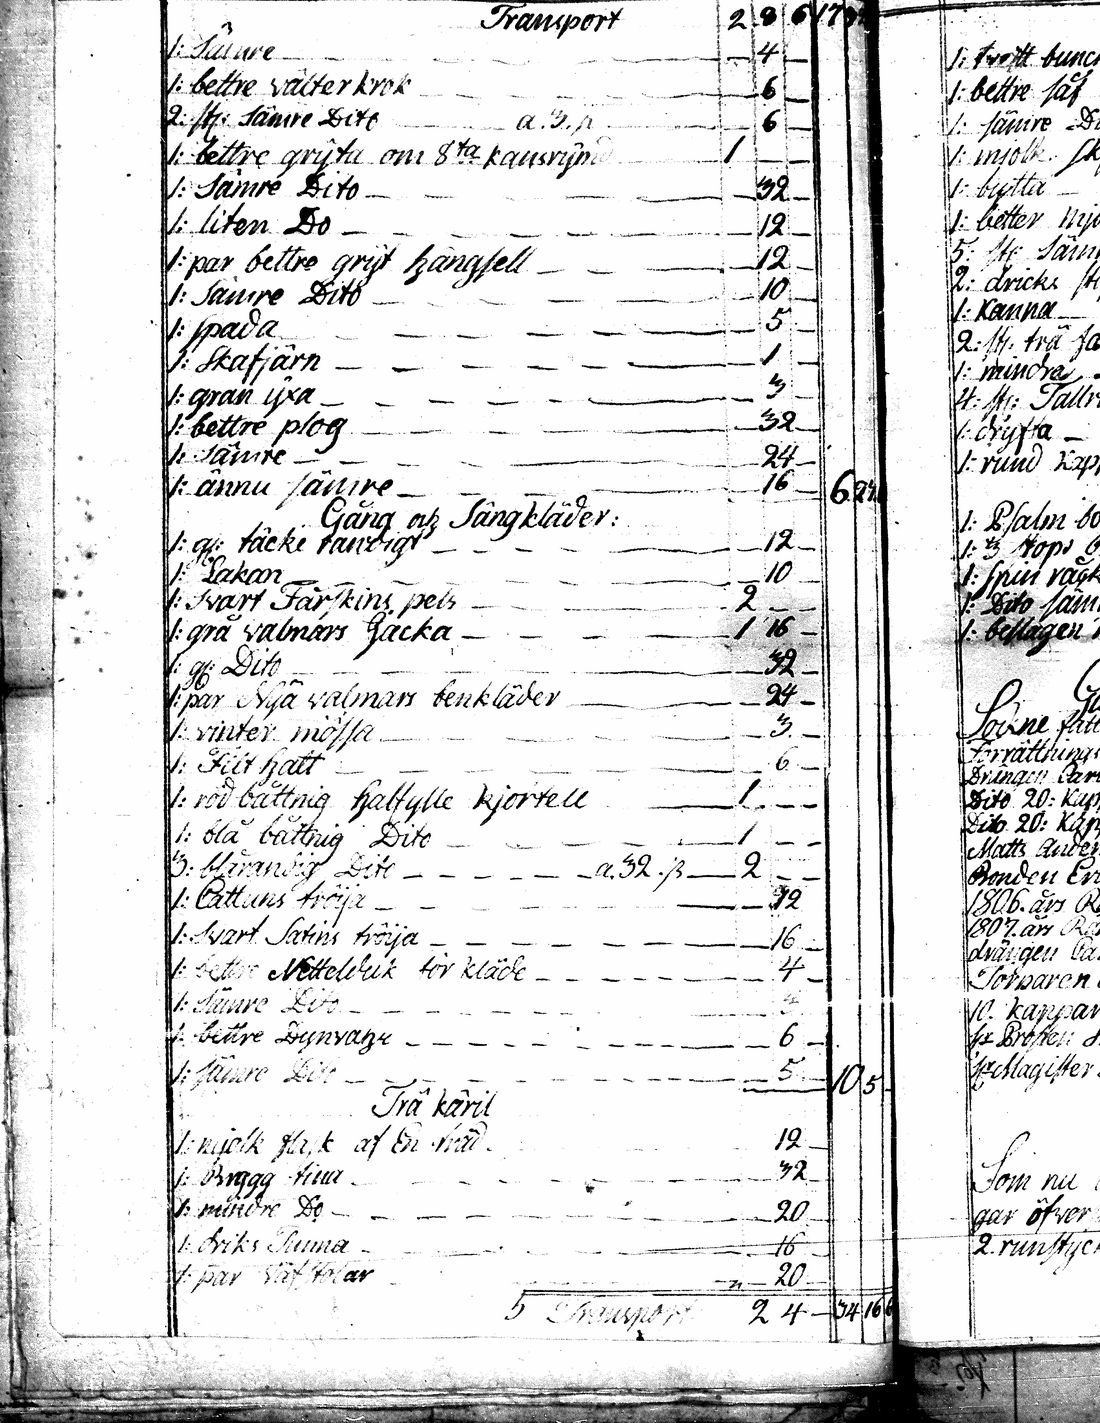 Transport 2 8 6 17
1: Sämre 4
1: bettre välter krok 6
2: st: Sämre Dito a. 3. β 6
1: bettre gryta om 8ta kansrymd 1
1: Sämre Dito 32
1: liten Do 12
1: par bettre gryt hängsell 12
1: Sämre Dito 10
1: spada 5
1: Skafjärn 1
1: gran yxa 3
1: bettre plog 32
1: Sämre 24
1: ännu sämre 16 6
Gång och Sängkläder:
1: gl: täcke randigt 12
1: Lakan 10
1: Svart Fårskins pels 2
1: grå valmars Jacka 1 16
1: gl: Dito 32
1: par Nyä valmars benkläder 24
1: vinter mössa 3
1: Filt hatt 6
1: röd båttnig halfylle kjortell 1
1: blå båttnig Dito 1
3: blårandig Dito a. 32. β 2
1: Cattuns tröija 12
1: Svart Satins tröija 16
1: bettre Netteldук tör kläde 4
1: sämre Dito
1: bettre Dynvahr 6
1: sämre Dito 5 10 5
Trä käril
1: mjölk flask af En träd 12
1: Brygg tina 32
1: mindre Do 20
1: driks Tunna 16
1: par Väfstolar 20
Transport 2 4 34 16 6
1: bettre såf
1: sämre
1: mjölk
1: bytta
1: better
5: st: Säm
2: dricks
1: Kanna
2: st: trä
1: mindre
4: st: Tallr
1: dryfta
1: rund kap
1: Psalm bo
1: Spin råck
1: Dito säm
1: beslagen
Förrättnings
Drängen Carl
Dito 20: Kap
Dito 20: Kap
Matts Ander
Bonden Eri
1806. års
1807. års
drängen Ca
Torparen
10. kappar
Prosten
Magister
Som nu
gar öfver
2. runstyck